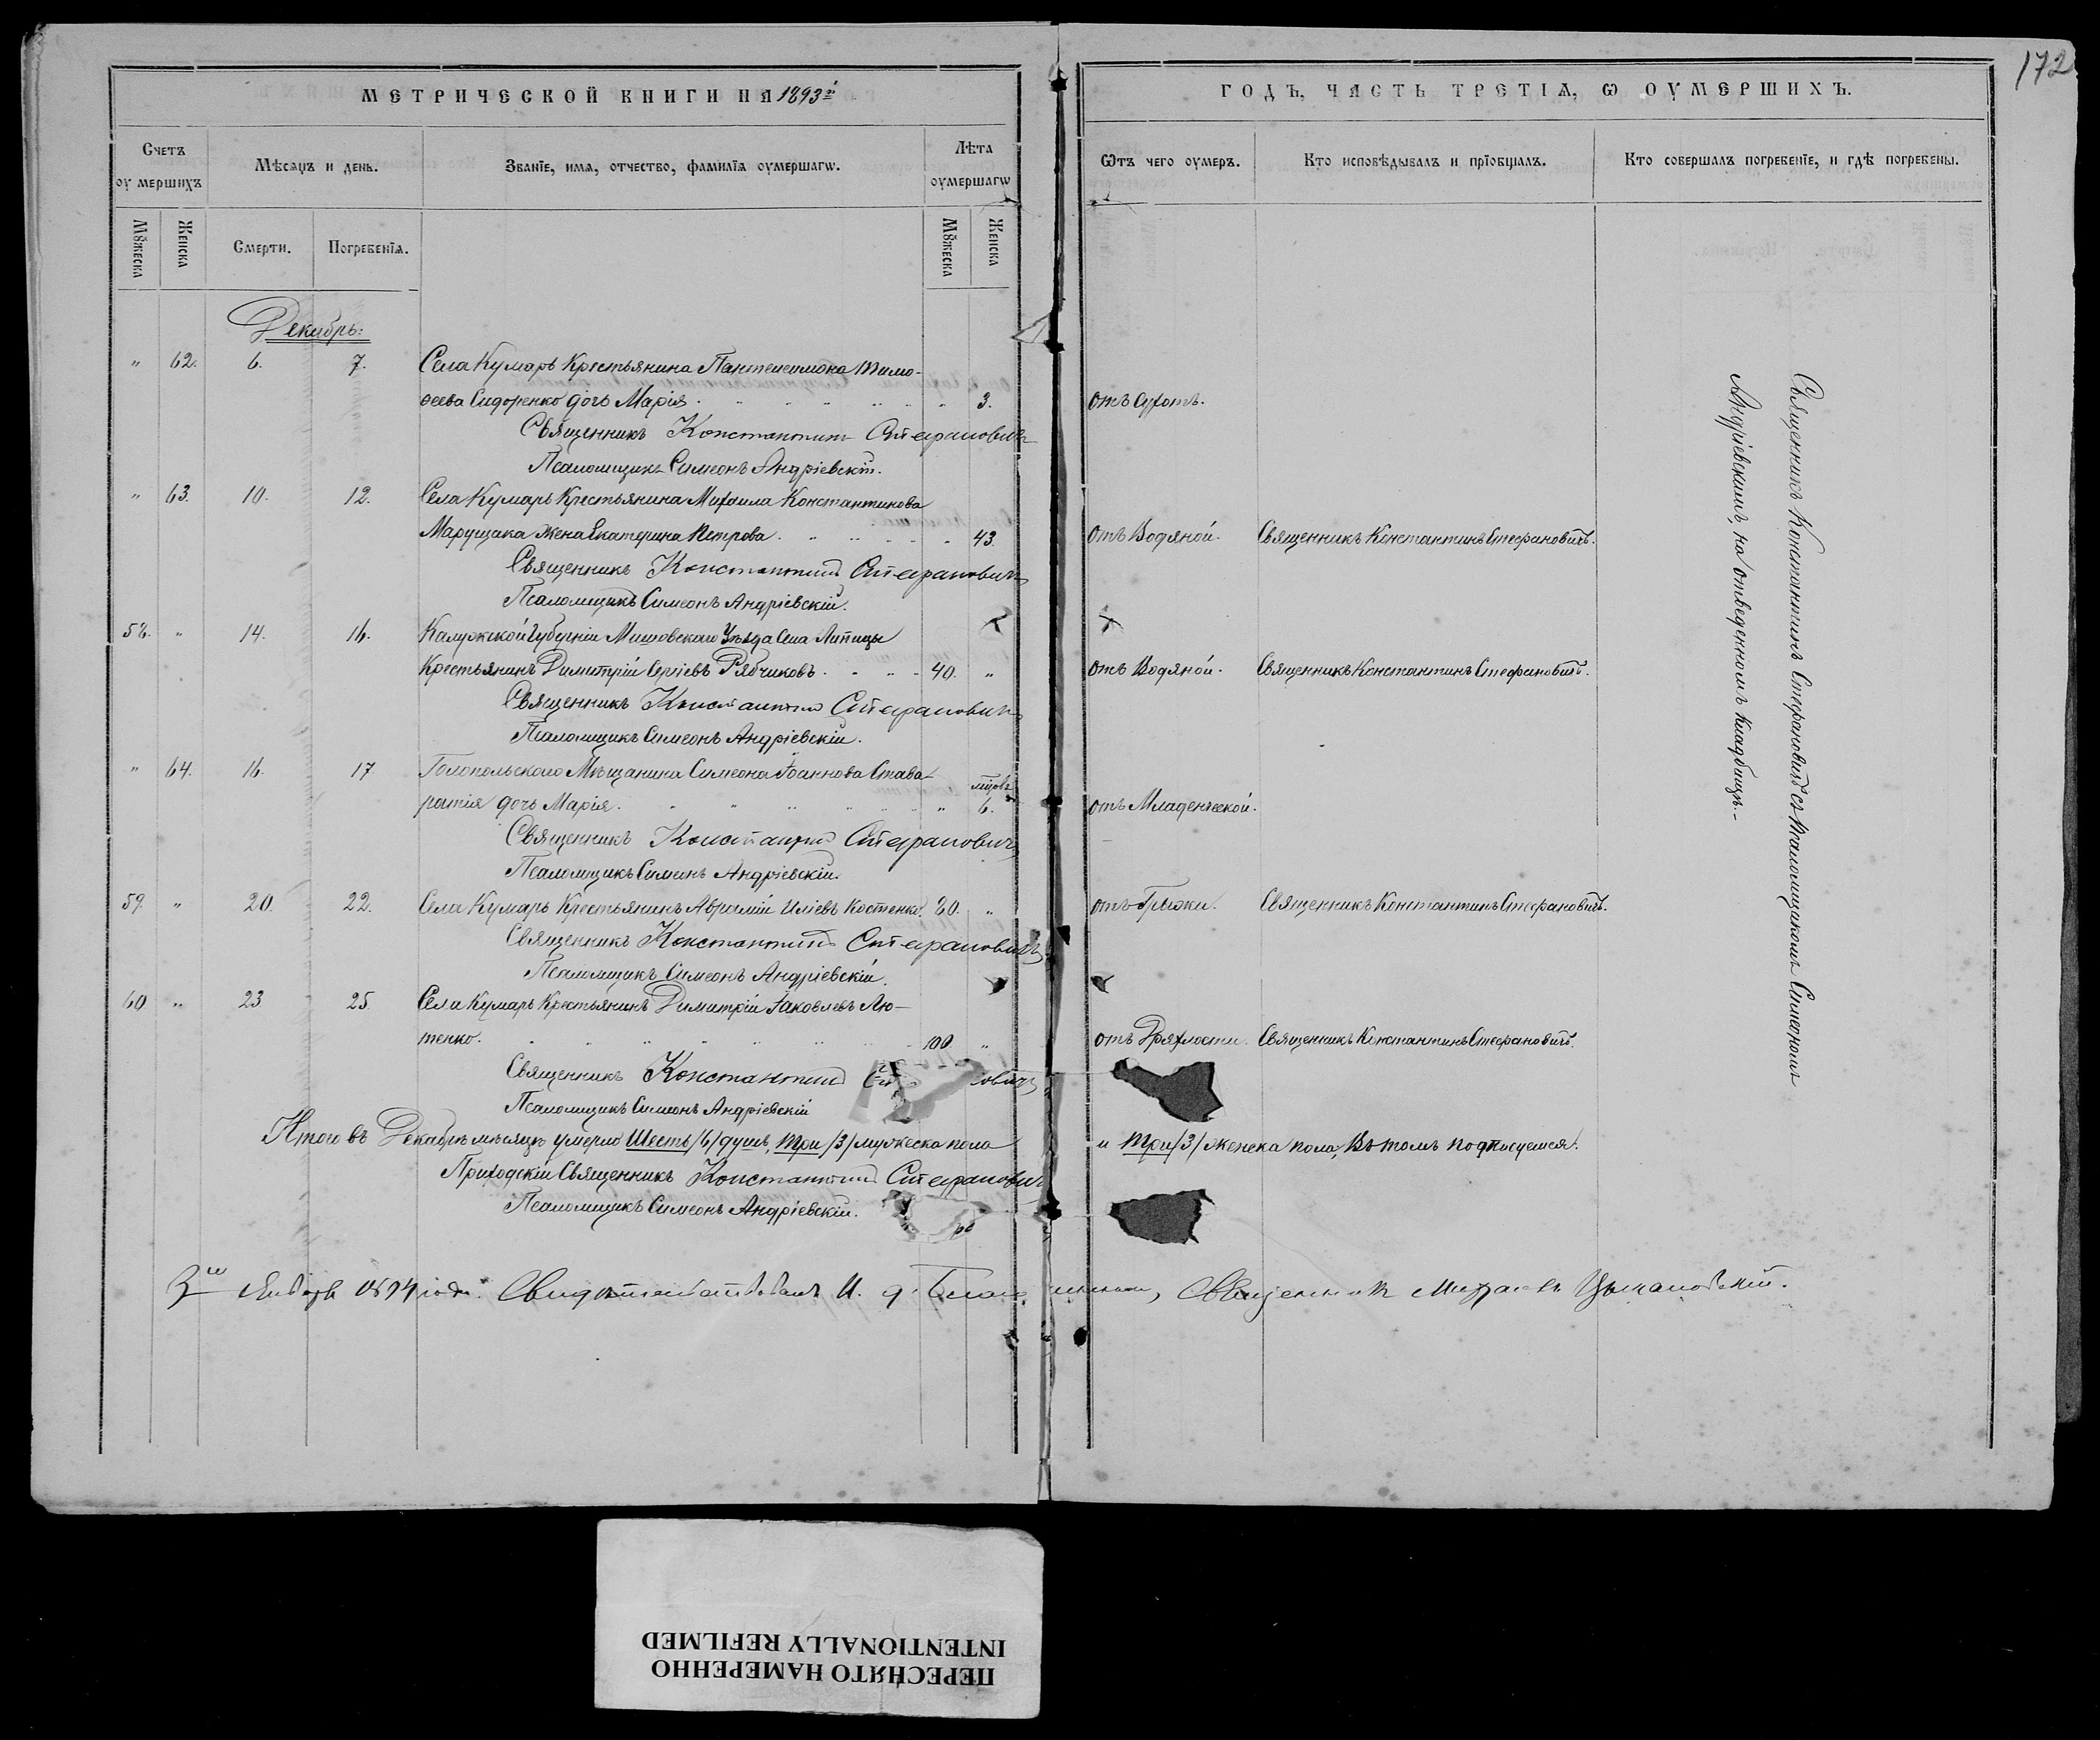 172
МЕТРИЧЕСКОЙ КНИГИ НА 1893й
ГОДЪ, ЧАСТЬ ТРЕТІѦ, Ѡ ОУМЕРШИХЪ.
Счетъ оумершихъ
Мѣсяцъ и день.
Званїе, имѧ, отчество, фамилїѧ оумершагѡ.
Лѣта оумершагѡ
Ѿтъ чего оумеръ.
Кто исповѣдывалъ и прїобщалъ.
Кто совершалъ погребенїе, и гдѣ погребены.
Мꙋжеска
Женска
Смерти.
Погребенїѧ.
Мꙋжеска
Женска
Декабрь:
" 62. 6. 7. Села Кумарь Крестьянина Пантелеимона Тимо-
ѳеева Сидоренко дочь Марія. " 3. отъ Сухотъ.
Священникъ Константинъ Стефановичъ
Псаломщикъ Симеонъ Андріевскій.
" 63. 10. 12. Села Кумарь Крестьянина Михаила Константинова
Марущака жена Екатерина Петрова. " 43. отъ Водяной. Священникъ Константинъ Стефановичъ.
Священникъ Константинъ Стефановичъ
Псаломщикъ Симеонъ Андріевскій.
58. " 14. 16. Калужской Губерніи Уѣзда Села Липицы
Крестьянинъ Димитрій Сергіевъ Рябчиковъ. 40. " отъ Водяной. Священникъ Константинъ Стефановичъ.
Священникъ Константинъ Стефановичъ
Псаломщикъ Симеонъ Андріевскій.
" 64. 16. 17. Мѣщанина Симеона Іоаннова Става-
ратія дочь Марія. " мцовъ 6. отъ Младенческой.
Священникъ Константинъ Стефановичъ
Псаломщикъ Симеонъ Андріевскій.
59. " 20. 22. Села Кумарь Крестьянинъ Аврамій Иліевъ Костенко. 20. " отъ Грыжи. Священникъ Константинъ Стефановичъ.
Священникъ Константинъ Стефановичъ
Псаломщикъ Симеонъ Андріевскій.
60 " 23 25. Села Кумарь Крестьянинъ Димитрій Іаковлевъ Лю-
тенко. 100 " отъ Дряхлости. Священникъ Константинъ Стефановичъ.
Священникъ Константинъ овичъ
Псаломщикъ Симеонъ Андріевскій
Итого въ Декабрѣ мѣсяцѣ умерло Шесть /6/ душъ, три /3/ мужеска пола и три /3/ женска пола, Въ томъ подписуемся:
Приходскій Священникъ Константинъ Стефановичъ
Псаломщикъ Симеонъ Андріевскій.
Января 1894 года. Свидѣтельствовалъ И. д. Священникъ Михаилъ
Священникъ Константинъ Стефановичъ съ Псаломщикомъ Симеономъ
Андріевскимъ, на отведенномъ кладбищѣ.
ПЕРЕСНЯТО НАМЕРЕННО
INTENTIONALLY REFILMED